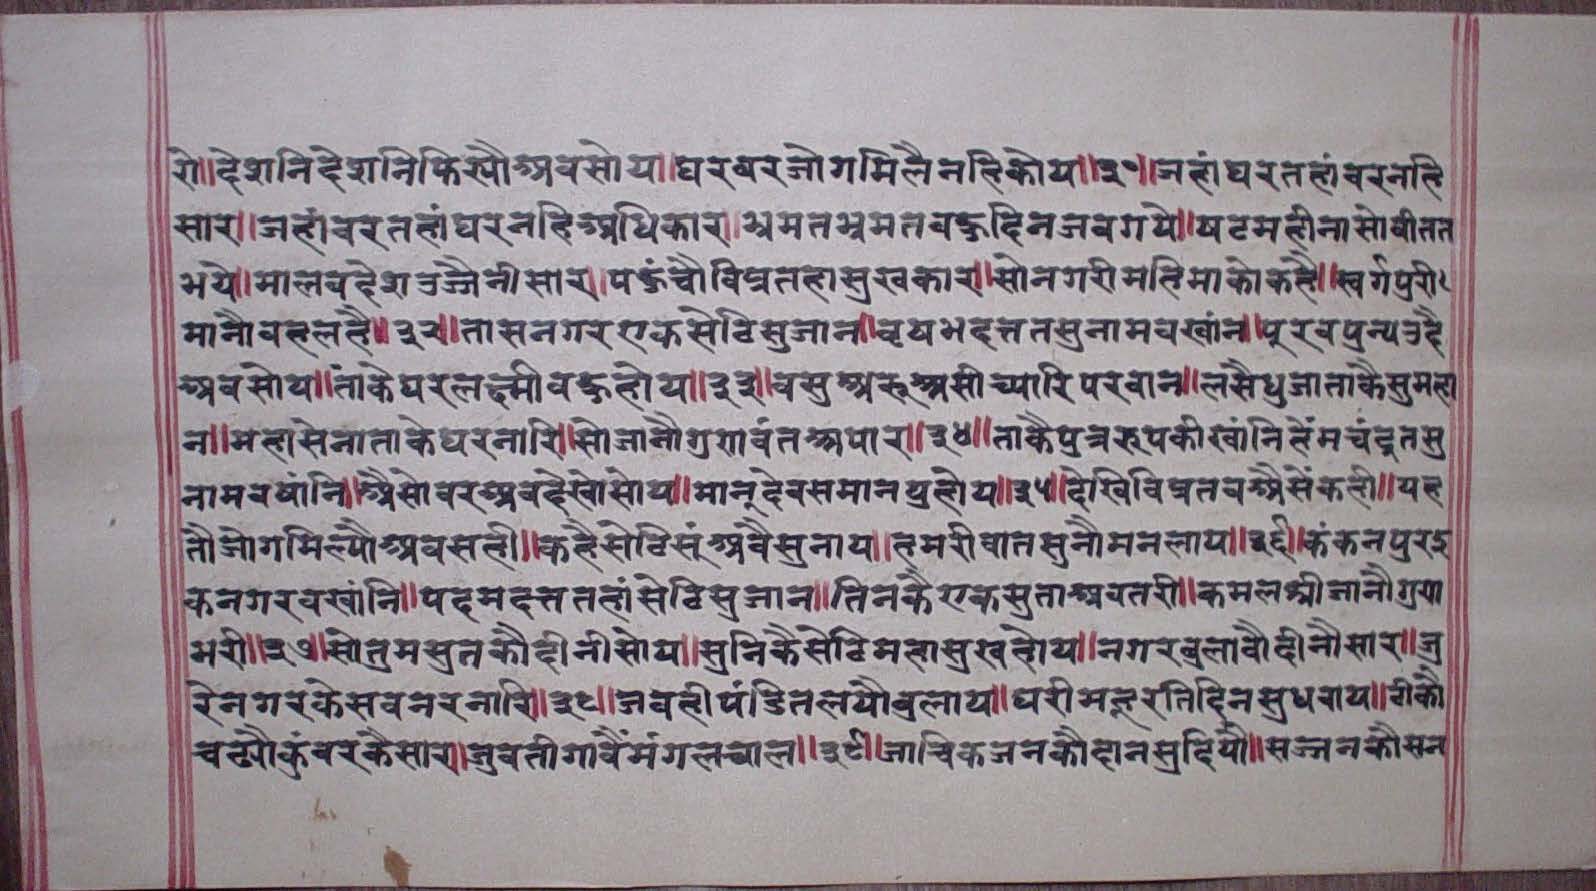 रो॥देशनिदेशनिफिख्यौअवसोय॥घरवरजोगमिलैनहिकोय॥३१॥जहांघरतहांवरनहि
सार॥जहांवरतहांघरनहिअधिकार॥भ्रमतभ्रमतवक्रदिनजवगये॥षटमहीनासोवीतत
भये॥मालवदेशउज्जैनीसार।पक्रंचौविप्रतहासुखकार॥सोनगरीमहिमाकोकहै॥स्वर्गपुरी
मानौवहलहै॥३२॥तासनगरएकसेठिसुजान॥वृषभदत्ततसुनामवखांन॥पूरवपुन्यउदै
अवसोय॥तांकेघरलक्ष्मीवक्रहोय॥३३॥वसुअरूअसीच्यारिपरवान॥लसैधुजाताकैसुमहा
न॥महासेनाताकेघरनारि॥सोजानौगुणवंतअपार॥३४॥ताकैपुत्ररुपकीखांनिहेंमचंद्रतसु
नामवषांनि॥अैसोवरअवदेखोसोय॥मानूदेवसमानप्रहोय॥३५॥देखिविप्रतवअैसेंकही॥यह
तौजोगमिल्यौअवसही॥कहैसेठिसूंअवैसुनाय॥हमरीवातसुनौमनलाय॥३६॥कंकनपुरइ
कनगरवखांनि॥पदमदत्ततहांसेठिसुजान॥तिनकैएकसुताअवतरी॥कमलश्रीजानौगुण
भरी॥३७॥सोतुमसुतकौदीनीसोय॥सुनिकैसेठिमहासुखहोय॥नगरवुलावौदीनौसार॥जु
रेनगरकेसवनरनारि॥३८॥जवहीपंडितलयौवुलाय॥घरीमहूरतिदिनसुधराय॥टीकौ
चढ्यौकुंवरकैसार।जुवतीगावैंमंगलचाल॥३९॥जाचिकजनकौदानसुदियौ॥सज्जनकौसन